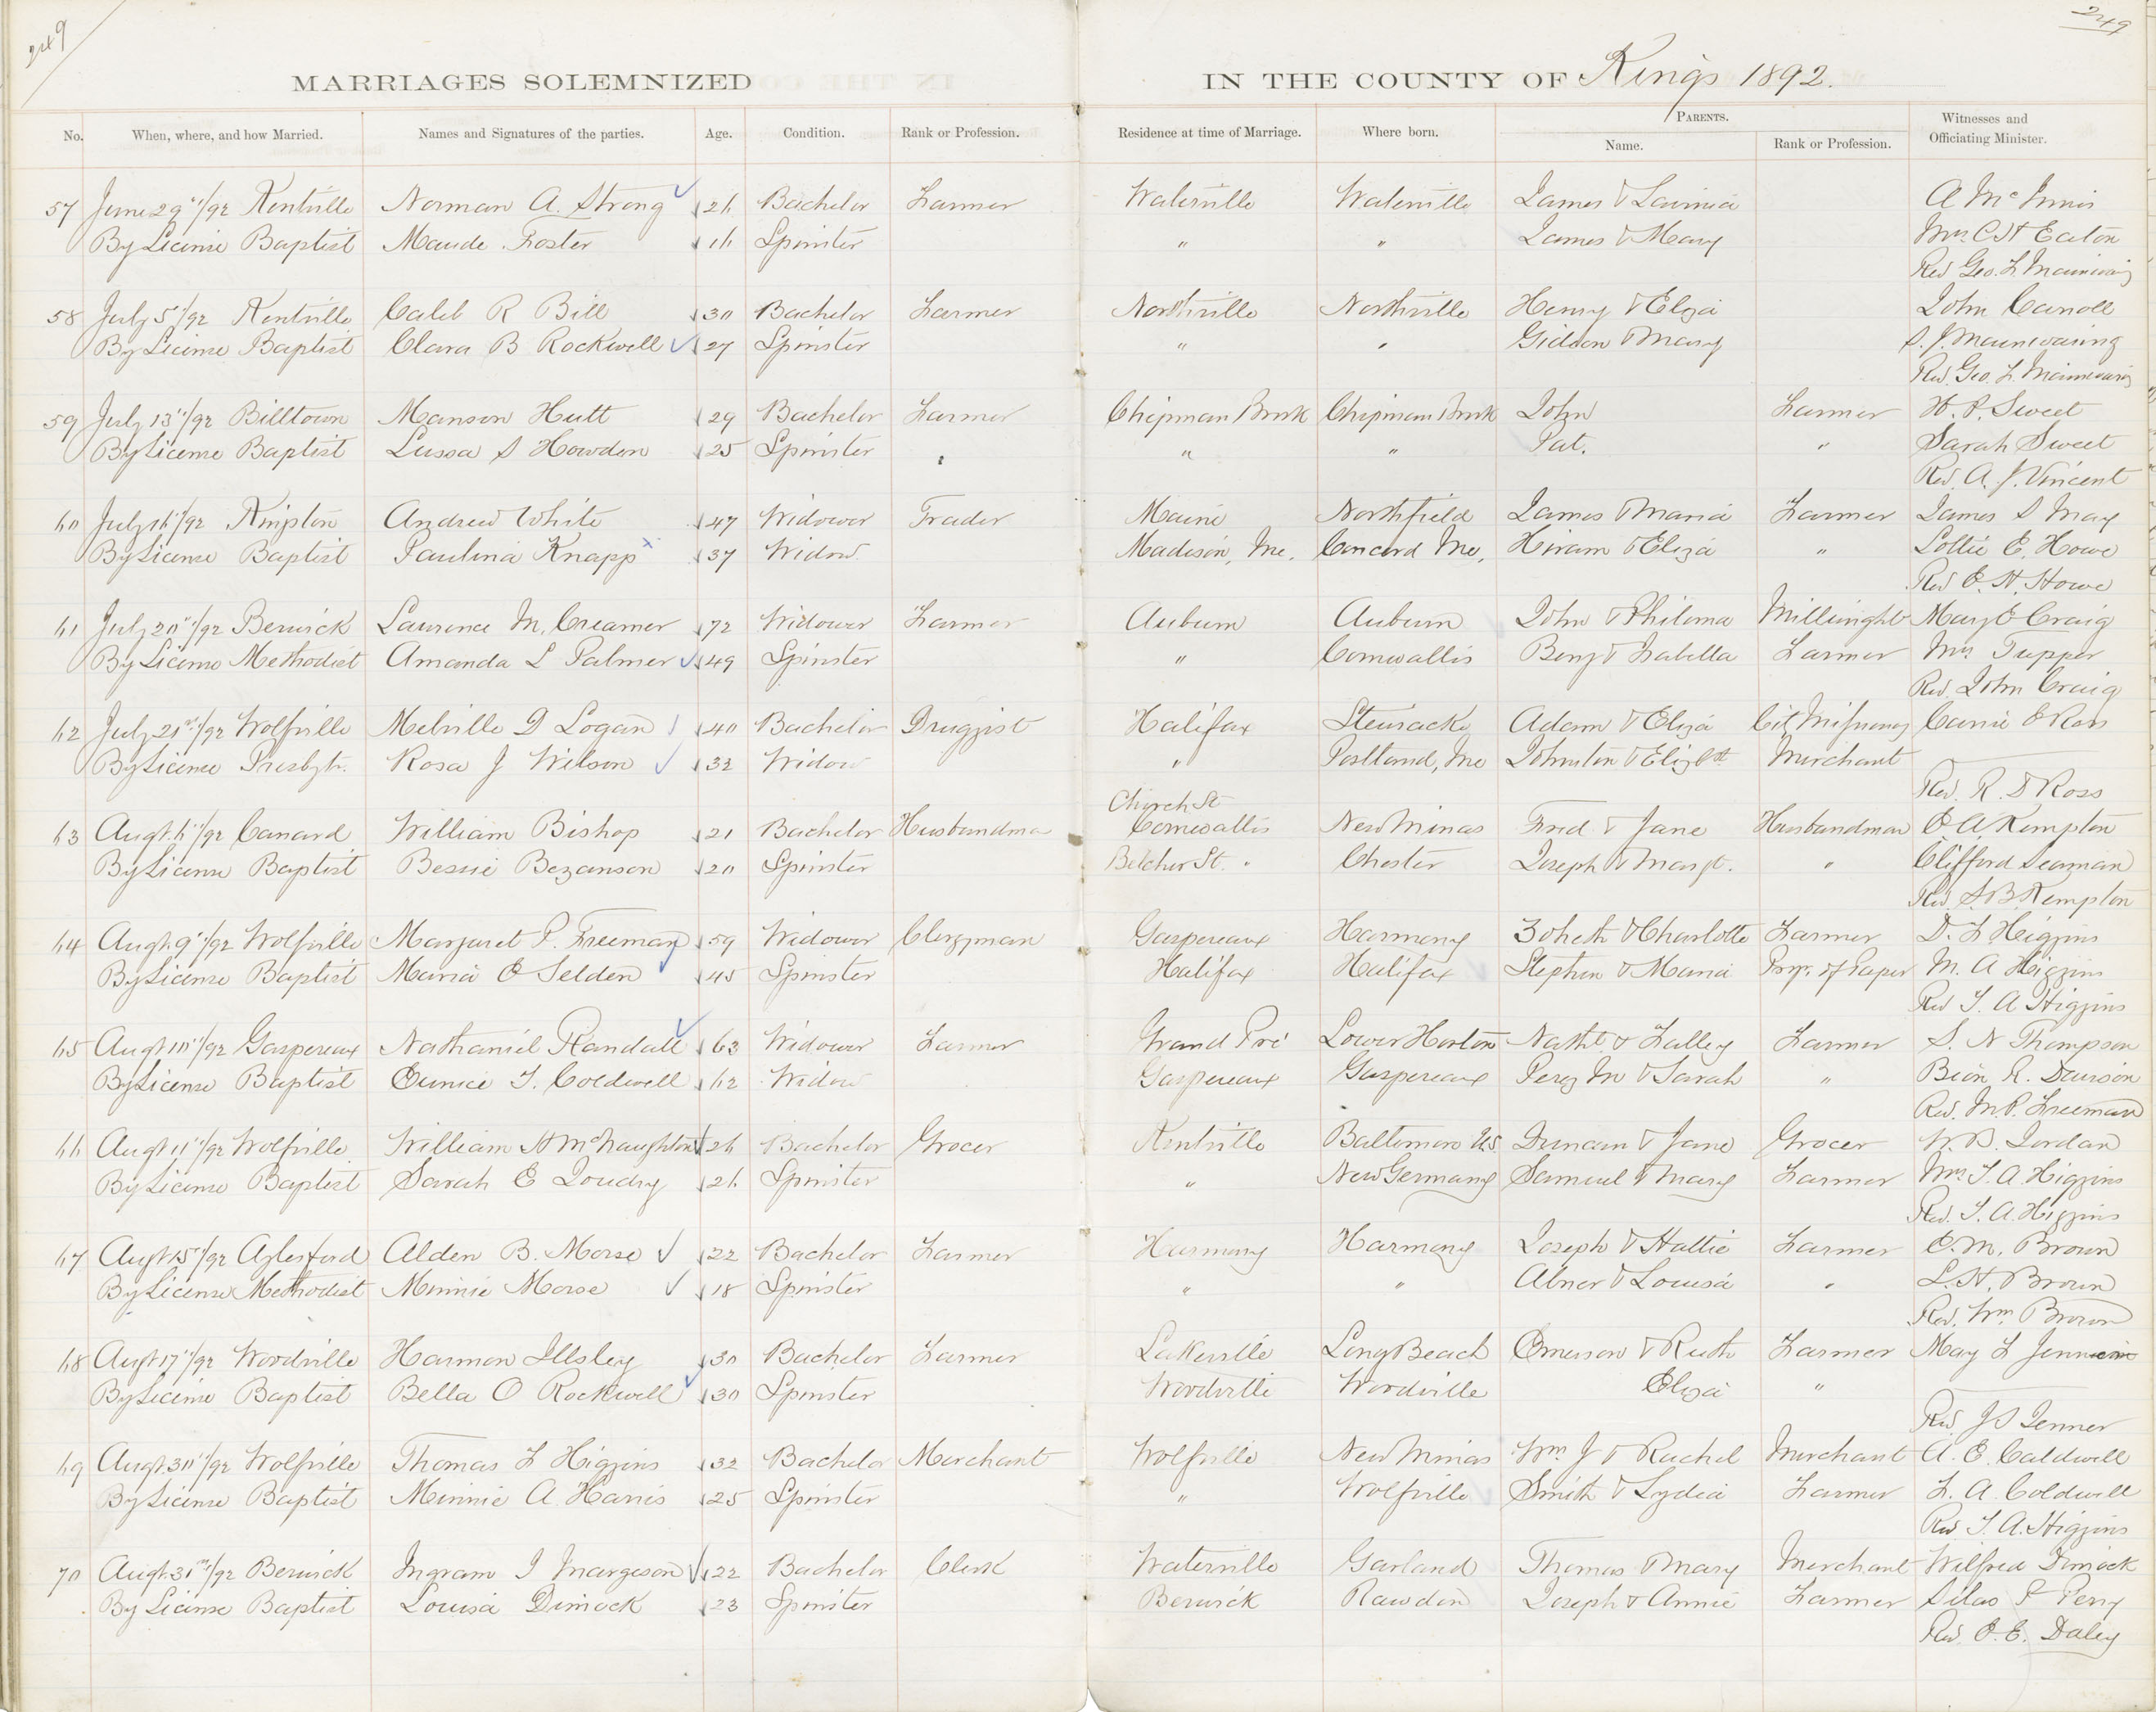 249
249
MARRIAGES SOLEMNIZED IN THE COUNTY OF Kings 1892.
No. When, where, and how Married. Names and Signatures of the parties. Age. Condition. Rank or Profession. Residence at time of Marriage. Where born. PARENTS. Name. Rank or Profession. Witnesses and Officiating Minister.
57 June 29"/92 Kentville Norman A. Strong 26 Bachelor Farmer Waterville Waterville James & Lavinia A McInnis
By License Baptist Maude Foster 16 Spinster " " James & Mary Mrs C H Eaton
Rev Geo. L Mainwaring
58 July 5"/92 Kentville Caleb R Bill 30 Bachelor Farmer Northville Northville Henry & Eliza John Carroll
By License Baptist Clara B Rockwell 27 Spinster " " Gideon & Mary S. J. Mainwaring
Rev. Geo. L. Mainwaring
59 July 13"/92 Billtown Manson Hutt 29 Bachelor Farmer Chipman Brook Chipman Brook John Farmer H. P. Sweet
By License Baptist S Howden 25 Spinster " " Pat. " Sarah Sweet
Rev. A. J. Vincent
60 July 16"/92 Kempton Andrew White 47 Widower Trader Maine Northfield James & Maria Farmer James S May
By License Baptist Paulina Knapp 37 Widow Madison, Me. Concord Me, Hiram & Eliza " Lottie E. Howe
Rev E. H. Howe
61 July 20"/92 Berwick Laurence M. Creamer 72 Widower Farmer Auburn Auburn John & Philoma Millwright Mary E Craig
By License Methodist Amanda L Palmer 49 Spinster " Cornwallis Benj & Isabella Farmer Mrs Tupper
Rev. John Craig
62 July 21st/92 Wolfville Melville D Logan 40 Bachelor Druggist Halifax Stewiacke Adam & Eliza Cit. Missionary Carrie E Ross
By License Presbytr. Rosa J Wilson 32 Widow " Portland, Me Johnston & Elizbth Merchant
Rev. R. D Ross
Church St
63 Augt. 6"/92 Canard William Bishop 21 Bachelor Husbandman Cornwallis New Minas Fred & Jane Husbandman E. A. Kempton
By License Baptist Bessie Bezanson 20 Spinster Belcher St. " Chester Joseph & Margt. " Clifford Seaman
Rev. S. B. Kempton
64 Augt. 9"/92 Wolfville Margaret P. Freeman 59 Widower Clergyman Gaspereaux Harmony Zoheth & Charlotte Farmer D. F Higgins
By License Baptist Maria E Selden 45 Spinster Halifax Halifax Stephen & Maria Propr. of Paper M. A Higgins
Rev T. A Higgins
65 Augt 10"/92 Gaspereaux Nathaniel Randall 63 Widower Farmer Grand Pré Lower Horton Nathl & Farmer S. N Thompson
By License Baptist Eunice T. Coldwell 62 Widow Gaspereaux Gaspereaux Perez M & Sarah " R. Davison
Rev. M. P. Freeman
66 Augt 11"/92 Wolfville William H McNaughton 26 Bachelor Grocer Kentville Baltimore U.S. Duncan & Jane Grocer W. D. Jordan
By License Baptist Sarah E Joudry 26 Spinster " New Germany Samuel & Mary Farmer Mrs T. A. Higgins
Rev. T. A. Higgins
67 Augt 15"/92 Aylesford Alden B. Morse 22 Bachelor Farmer Harmony Harmony Joseph & Hattie Farmer E. M. Brown
By License Methodist Minnie Morse 18 Spinster " " Abner & Louisa " L. H. Brown
Rev. Wm Brown
68 Augt 17"/92 Woodville Harmon Illsley 30 Bachelor Farmer Lakeville Long Beach Emerson & Ruth Farmer May F
By License Baptist Bella O Rockwell 30 Spinster Woodville Woodville Eliza "
Rev. J S Jenner
69 Augt. 30"/92 Wolfville Thomas L Higgins 32 Bachelor Merchant Wolfville New Minas Wm. J & Rachel Merchant A. E. Caldwell
By License Baptist Minnie A. Harris 25 Spinster " Wolfville Smith & Lydia Farmer L. A. Coldwell
Rev T. A. Higgins
70 Augt. 31st/92 Berwick Ingram I Margeson 22 Bachelor Clerk Waterville Garland Thomas & Mary Merchant Wilfred Dimock
By License Baptist Louisa Dimock 23 Spinster Berwick Rawdon Joseph & Annie Farmer Silas P Perry
Rev. E. E. Daley